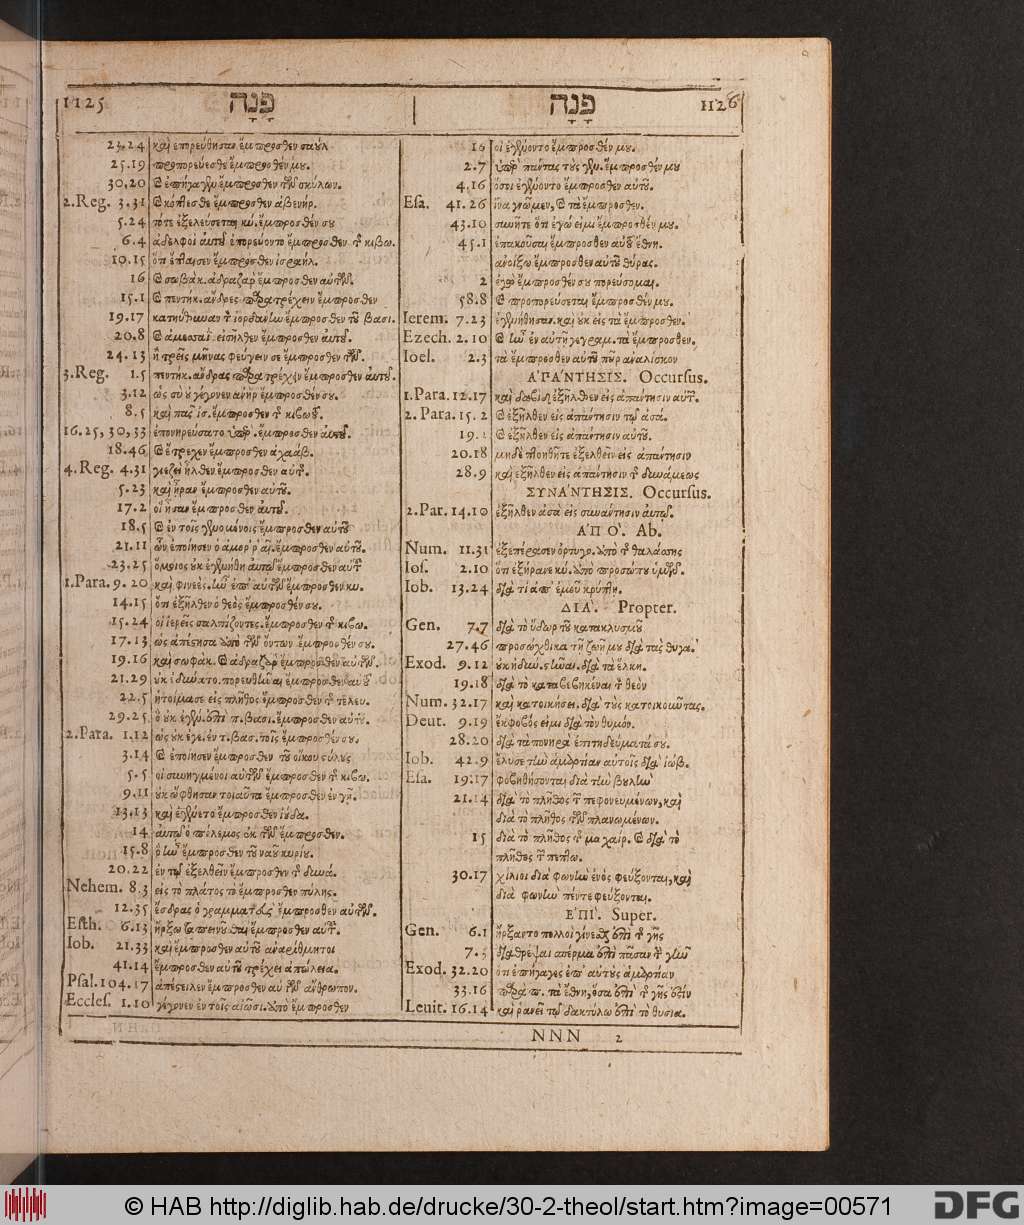 1125 פָּנָה
פָּנָה 1126
23.24 καὶ ἐπορεύθησαν ἔμπροσθεν σαούλ
25.19 προπορεύεσθε ἔμπροσθέν μου.
30.20 ἔμπροσθεν τῶν σκύλων.
2.Reg. 3.31 κόπτεσθε ἔμπροσθεν ἀβενήρ.
5.24 τότε ἐξελεύσεται κύ. ἔμπροσθέν σου
6.4 ἀδελφοὶ αὐτοῦ ἐπορεύοντο ἔμπροσθεν τ κιβω.
10.15 ὅτι ἔπταισεν ἔμπροσθεν ἰσραήλ.
16 ἔμπροσθεν αὐτῶν.
15.1 πεντήκ. ἄνδρες παρατρέχειν ἔμπροσθεν
19.17 ἔμπροσθεν τοῦ βασι.
20.8 εἰσῆλθεν ἔμπροσθεν αὐτοῦ.
24.13 ἢ τρεῖς μῆνας φεύγειν σε ἔμπροσθεν τῶν.
3.Reg. 1.5 πεντήκ. ἄνδρας παρατρέχειν ἔμπροσθεν αὐτοῦ.
3.12 ὡς σὺ οὐ γέγονεν ἀνὴρ ἔμπροσθέν σου.
8.5 καὶ πᾶς ἰσ. ἔμπροσθεν τ κιβωτ.
16.25, 30, 33 ἐπονηρεύσατο ὑπὲρ. ἔμπροσθεν αὐτοῦ.
18.46 ἔτρεχεν ἔμπροσθεν ἀχαάβ.
4.Reg. 4.31 γιεζεὶ ἦλθεν ἔμπροσθεν αὐτ.
5.23 καὶ ἦραν ἔμπροσθεν αὐτοῦ.
17.2 οἳ ἦσαν ἔμπροσθεν αὐτοῦ.
18.5 ἐν τοῖς γενομένοις ἔμπροσθεν αὐτοῦ
21.11 ὧν ἐποίησεν ὁ ἀμορ. ὁ ἔμπροσθεν αὐτοῦ.
23.25 ὅμοιος οὐκ ἐγενήθη αὐτῷ ἔμπροσθεν αὐτ
1.Para. 9.20 καὶ φινεές. ἦν ἐπ' αὐτῶν ἔμπροσθεν κυ.
14.15 ὅτι ἐξῆλθεν ὁ θεὸς ἔμπροσθέν σου.
15.24 οἱ ἱερεῖς σαλπίζοντες. ἔμπροσθεν τ κιβω.
17.13 ὡς ἀπέστησα ἀπὸ τῶν ὄντων ἔμπροσθέν σου.
19.16 καὶ σωφάκ. ἔμπροσθεν αὐτῶν.
21.29 ἔμπροσθεν αὐτ
22.5 ἡτοίμασε εἰς πλῆθος ἔμπροσθεν τ τελευ.
29.25 ὃ οὐκ ἐγεν. ἐπὶ π. βασι. ἔμπροσθεν αὐτοῦ.
2.Para. 1.12 ὡς οὐκ ἐγε. ἐν τ. βασ. τοῖς ἔμπροσθέν σου.
3.14 ἐποίησεν ἔμπροσθεν τοῦ οἴκου στύλους
5.5 οἱ συνηγμένοι αὐτῶν ἔμπροσθεν τ κιβω.
9.11 οὐκ ὤφθησαν τοιαῦτα ἔμπροσθεν ἐν γῇ.
13.13 καὶ ἐγένετο ἔμπροσθεν ἰούδα.
14 αὐτῶν ὁ πόλεμος ἐκ τῶν ἔμπροσθεν.
15.8 ὃ ἦν ἔμπροσθεν τοῦ ναοῦ κυρίου.
20.22 ἐν τῷ ἐξελθεῖν ἔμπροσθεν τ δυνά.
Nehem. 8.3 εἰς τὸ πλάτος τὸ ἔμπροσθεν πύλης.
12.35 ἔσδρας ὁ γραμματεὺς ἔμπροσθεν αὐτῶν.
Esth. 6.13 ἤρξω ταπεινοῦσθαι ἔμπροσθεν αὐτ.
Iob. 21.33 καὶ ἔμπροσθεν αὐτοῦ ἀναρίθμητοι
41.14 ἔμπροσθεν αὐτοῦ τρέχει ἀπώλεια.
Psal. 104.17 ἀπέστειλεν ἔμπροσθεν αὐτῶν ἄνθρωπον.
Eccles. 1.10 γέγονεν ἐν τοῖς αἰῶσι. ἀπὸ ἔμπροσθεν
16 οἳ ἐγένοντο ἔμπροσθέν μου.
2.7 ὑπὲρ πάντας τοὺς γεν. ἔμπροσθέν μου
4.16 ὅσοι ἐγένοντο ἔμπροσθεν αὐτοῦ.
Esa. 41.26 ἵνα γνῶμεν, τὰ ἔμπροσθεν.
43.10 συνῆτε ὅτι ἐγώ εἰμι ἔμπροσθέν μου.
45.1 ἐπακοῦσαι ἔμπροσθεν αὐτοῦ ἔθνη.
ἀνοίξω ἔμπροσθεν αὐτοῦ θύρας.
2 ἐγὼ ἔμπροσθέν σου πορεύσομαι.
58.8 προπορεύσεται ἔμπροσθέν μου.
Ierem. 7.23 ἐγενήθησαν. καὶ οὐκ εἰς τὰ ἔμπροσθεν.
Ezech. 2.10 ἦν ἐν αὐτῇ γεγραμ. τὰ ἔμπροσθεν,
Ioel. 2.3 τὰ ἔμπροσθεν αὐτοῦ πῦρ ἀναλίσκον
ἈΠΆΝΤΗΣΙΣ. Occursus.
1.Para. 12.17 καὶ δαβὶδ ἐξῆλθεν εἰς ἀπάντησιν αὐτ.
2.Para. 15.2 ἐξῆλθεν εἰς ἀπάντησιν τῷ ἀσά.
19.2 ἐξῆλθεν εἰς ἀπάντησιν αὐτοῦ.
20.18 μηδὲ πτοηθῆτε ἐξελθεῖν εἰς ἀπάντησιν
28.9 καὶ ἐξῆλθεν εἰς ἀπάντησιν τ δυνάμεως
ΣΥΝΆΝΤΗΣΙΣ. Occursus.
2.Par. 14.10 ἐξῆλθεν ἀσὰ εἰς συνάντησιν αὐτῷ.
ἈΠΌ. Ab.
Num. 11.31 ἐξεπέρασεν ὀρτυγο. ἀπὸ τ θαλάσσης
Ios. 2.10 ὅτι ἐξήρανε κύ. ἀπὸ προσώπου ὑμῶν.
Iob. 13.24 διὰ τί ἀπ' ἐμοῦ κρύπτῃ.
ΔΙΆ. Propter.
Gen. 7.7 διὰ τὸ ὕδωρ τοῦ κατακλυσμοῦ
27.46 προσώχθικα τῇ ζωῇ μου διὰ τὰς θυγα.
Exod. 9.12 οὐκ ἠδύν. στῆναι. διὰ τὰ ἕλκη.
19.18 διὰ τὸ καταβεβηκέναι τ θεὸν
Num. 32.17 καὶ κατοικήσει. διὰ τοὺς κατοικοῦντας.
Deut. 9.19 ἔκφοβός εἰμι διὰ τὸν θυμόν.
28.20 διὰ τὰ πονηρὰ ἐπιτηδεύματά σου.
Iob. 42.9 ἔλυσε τὴν ἁμαρτίαν αὐτοῖς διὰ ἰώβ.
Esa. 19.17 φοβηθήσονται διὰ τὴν βουλὴν
21.14 διὰ τὸ πλῆθος τ πεφονευμένων, καὶ
διὰ τὸ πλῆθος τῶν πλανωμένων.
15 διὰ τὸ πλῆθος τ μαχαίρ. διὰ τὸ
πλῆθος τ πεπτω.
30.17 χίλιοι διὰ φωνὴν ἑνὸς φεύξονται, καὶ
διὰ φωνὴν πέντε φεύξονται.
ἘΠΊ. Super.
Gen. 6.1 ἤρξαντο πολλοὶ γίνεσθαι ἐπὶ τ γῆς
7.3 διαθρέψαι σπέρμα ἐπὶ πᾶσαν τ γῆν
Exod. 32.20 ὅτι ἐπήγαγες ἐπ' αὐτοὺς ἁμαρτίαν
33.16 παρὰ π. τὰ ἔθνη, ὅσα ἐπὶ τ γῆς ἐστίν
Leuit. 16.14 καὶ ῥανεῖ τῷ δακτύλῳ ἐπὶ τὸ θυσια.
NNN 2
© HAB http://diglib.hab.de/drucke/30-2-theol/start.htm?image=00571
DFG